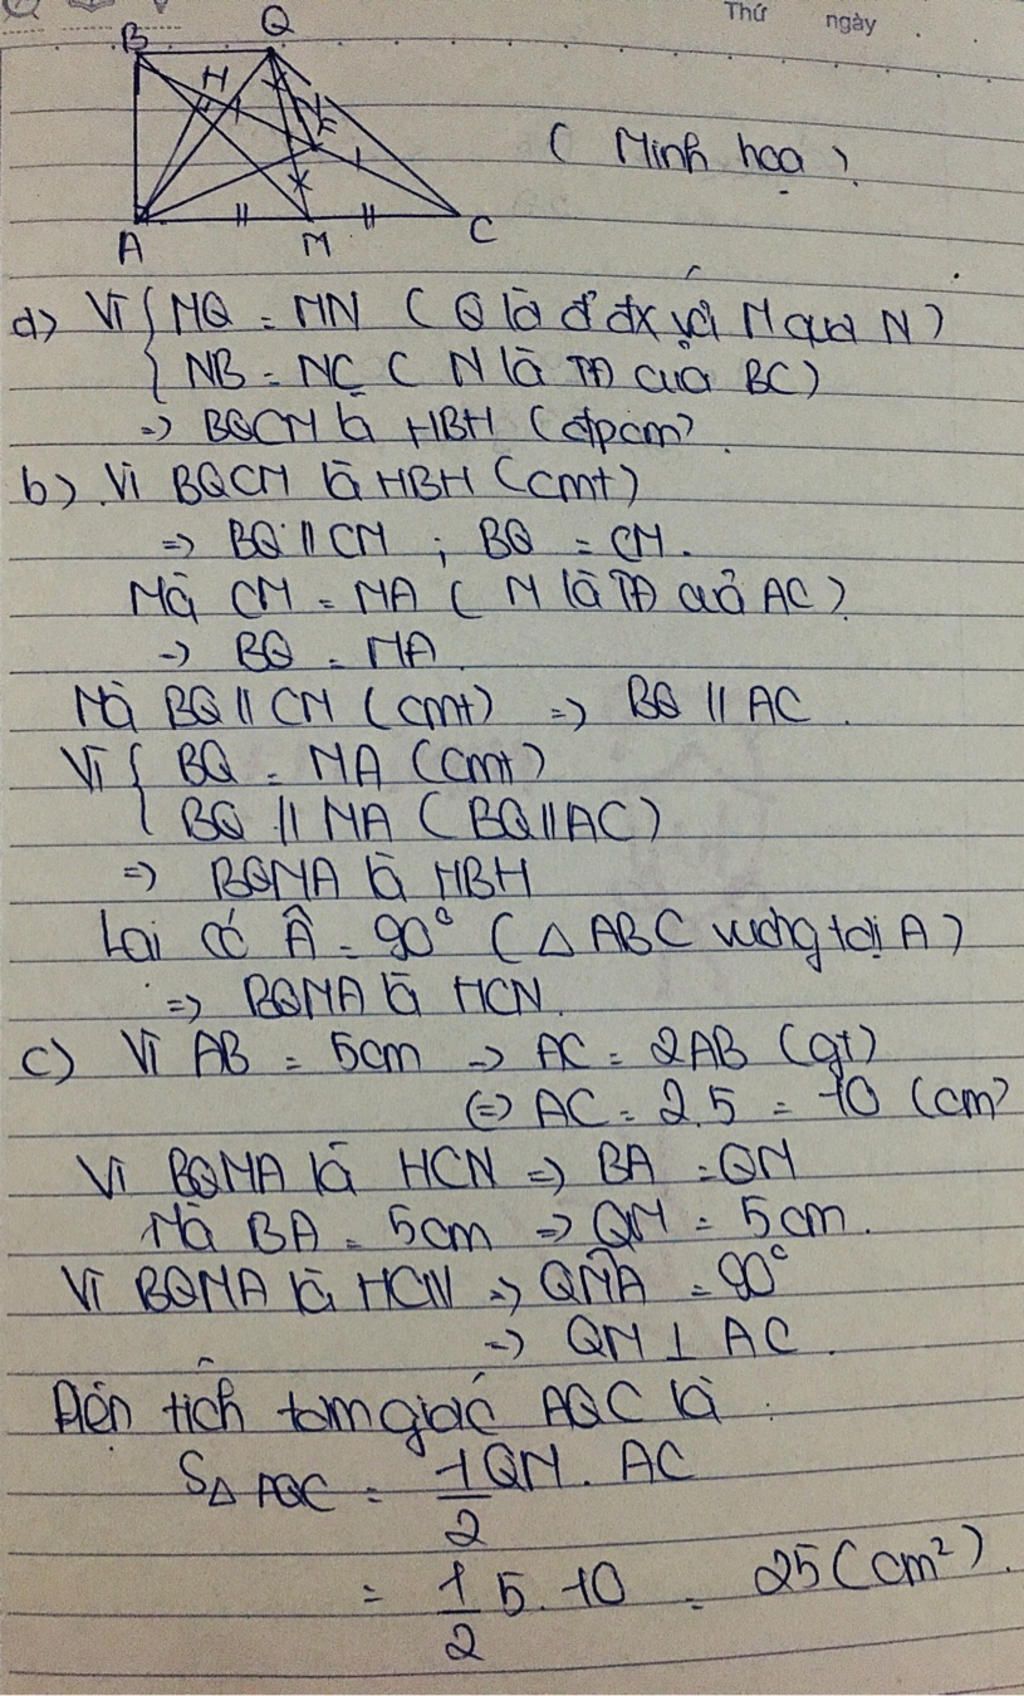 Thứ ngày
B Q
H
E
A M C
( Minh hoạ )
a) Vì { MQ = MN ( Q là đ' đx với M qua N )
{ NB = NC ( N là TĐ của BC )
=> BQCM là HBH ( đpcm )
b) Vì BQCM là HBH (cmt)
=> BQ // CM ; BQ = CM.
Mà CM = MA ( M là TĐ của AC )
=> BQ = MA
Mà BQ // CM (cmt) => BQ // AC.
Vì { BQ = MA (cmt)
{ BQ // MA ( BQ // AC )
=> BQMA là HBH
Lại có Â = 90° ( △ ABC vuông tại A )
=> BQMA là HCN.
c) Vì AB = 5cm => AC = 2AB (gt)
(=) AC = 2.5 = 10 (cm)
Vì BQMA là HCN => BA = QM
Mà BA = 5cm => QM = 5cm.
Vì BQMA là HCN => QM̂A = 90°
=> QM ⊥ AC.
Diện tích tam giác AQC là :
S△ AQC = 1/2 QM. AC
= 1/2 5. 10 = 25 (cm²).